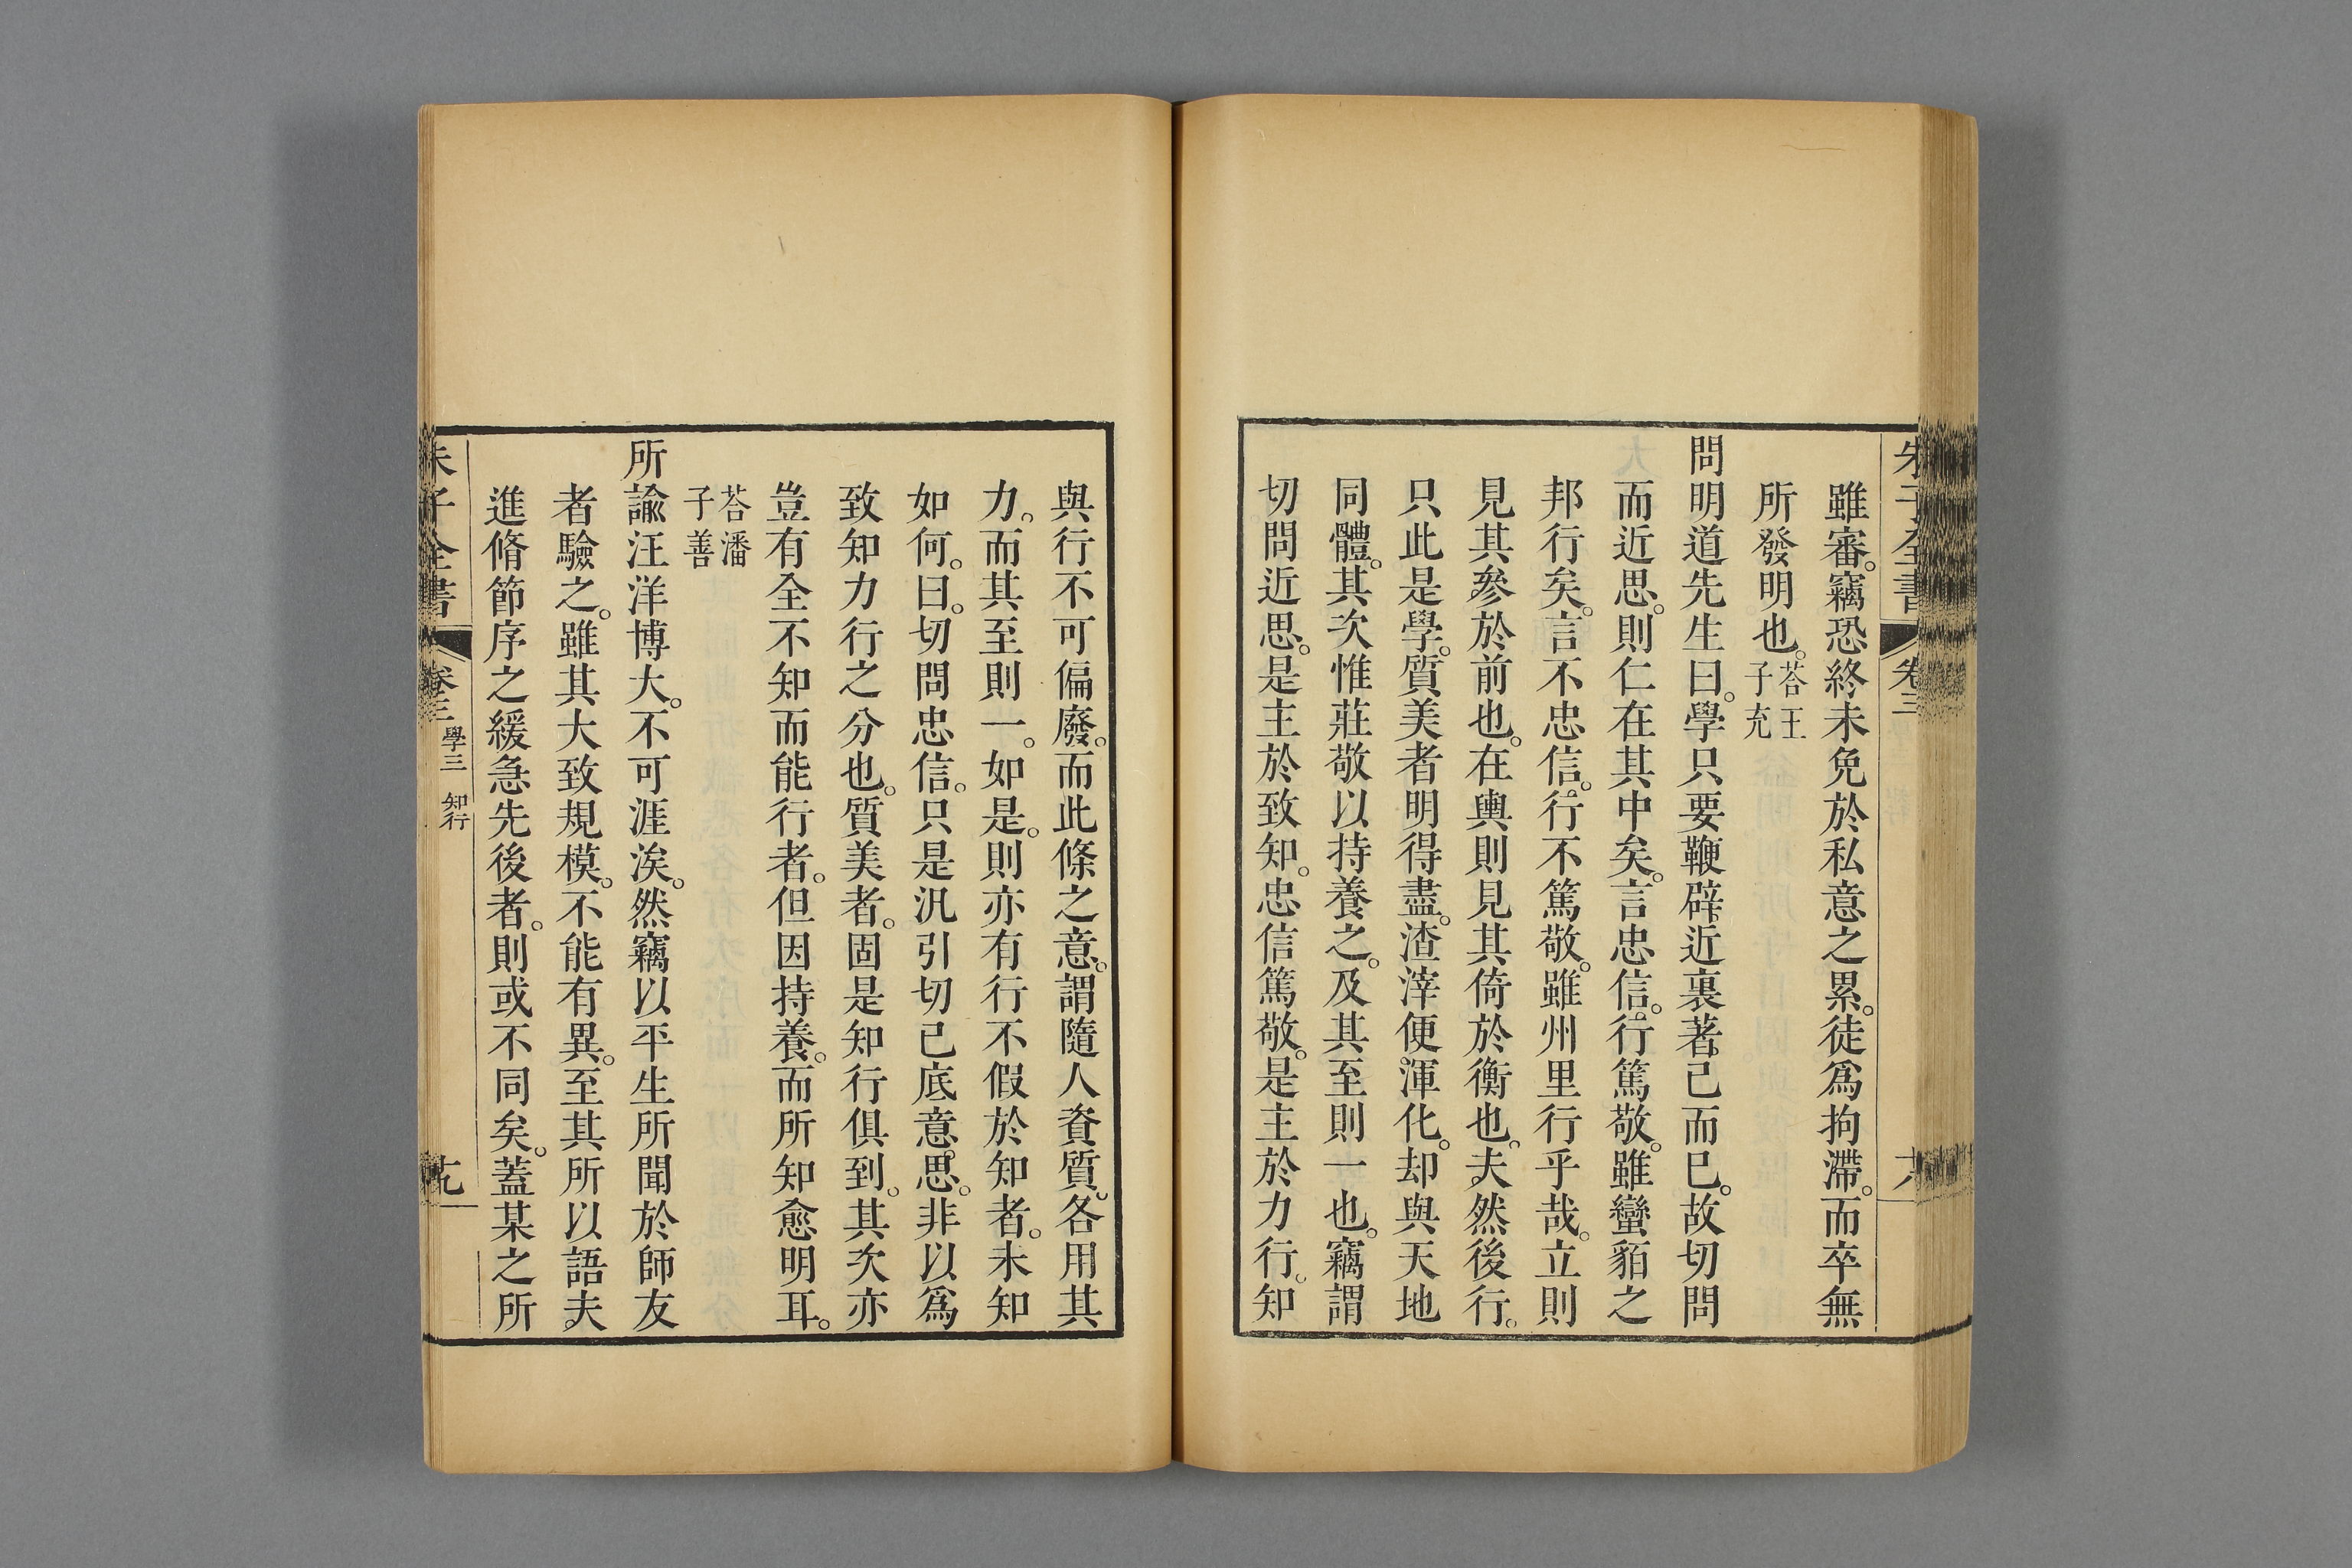 朱子全書 卷三
雖審。竊恐終未免於私意之累。徒爲拘滯。而卒無
所發明也。荅王子充
問明道先生曰。學只要鞭辟近裏著己而已。故切問
而近思。則仁在其中矣。言忠信。行篤敬。雖蠻貊之
邦行矣。言不忠信。行不篤敬。雖州里行乎哉。立則
見其參於前也。在輿則見其倚於衡也。夫然後行。
只此是學。質美者明得盡。渣滓便渾化。却與天地
同體。其次惟莊敬以持養之。及其至則一也。竊謂
切問近思。是主於致知。忠信篤敬。是主於力行。知
與行不可偏廢。而此條之意。謂隨人資質。各用其
力。而其至則一。如是。則亦有行不假於知者。未知
如何。曰。切問忠信。只是汎引切己底意思。非以爲
致知力行之分也。質美者。固是知行俱到。其次亦
豈有全不知而能行者。但因持養。而所知愈明耳。
荅潘子善
所諭汪洋博大。不可涯涘。然竊以平生所聞於師友
者驗之。雖其大致規模。不能有異。至其所以語夫
進脩節序之緩急先後者。則或不同矣。蓋某之所
朱子全書 卷三 學三 知行 十九